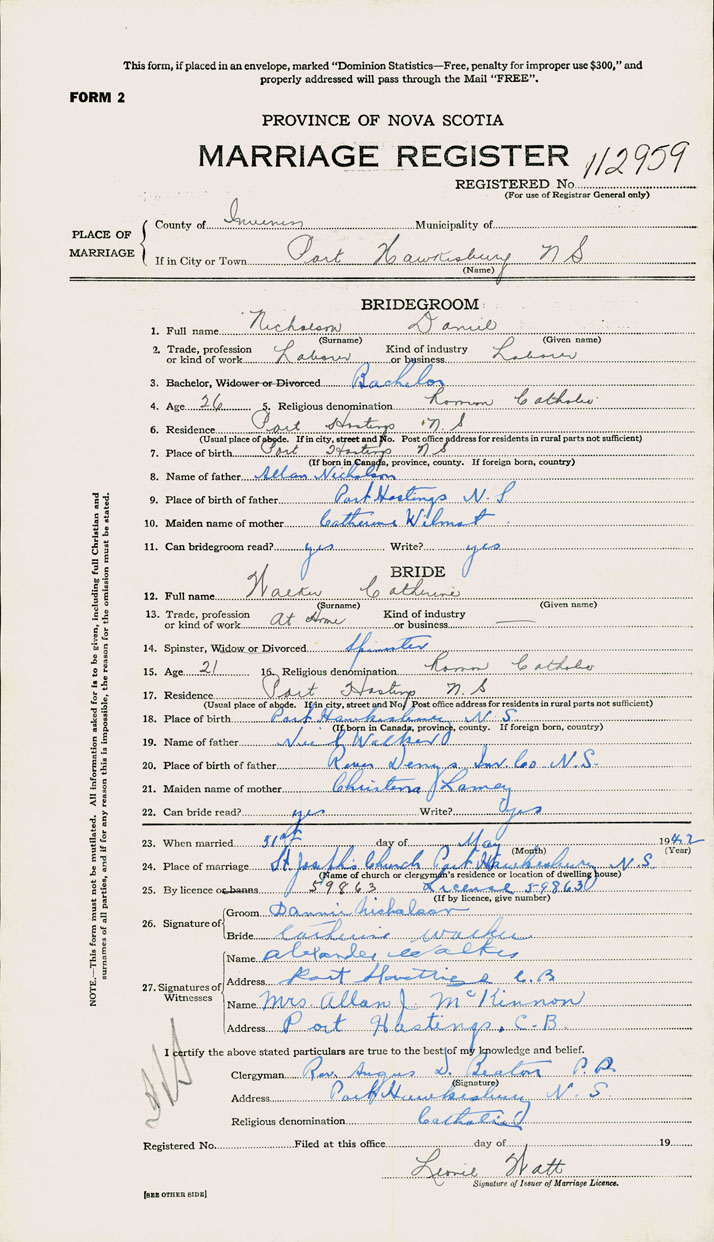 This form, if placed in an envelope, marked "Dominion Statistics—Free, penalty for improper use $300," and
properly addressed will pass through the Mail "FREE".
FORM 2
PROVINCE OF NOVA SCOTIA
MARRIAGE REGISTER 112959
REGISTERED No.
(For use of Registrar General only)
PLACE OF MARRIAGE
County of Inverness Municipality of
If in City or Town Port Hawkesbury N S
(Name)
BRIDEGROOM
1. Full name Nicholson Daniel
(Surname) (Given name)
2. Trade, profession or kind of work Laborer Kind of industry or business Laborer
3. Bachelor, Widower or Divorced Bachelor
4. Age 26 5. Religious denomination Roman Catholic
6. Residence Port Hastings N. S
(Usual place of abode. If in city, street and No. Post office address for residents in rural parts not sufficient)
7. Place of birth Port Hastings N S
(If born in Canada, province, county. If foreign born, country)
8. Name of father Allan Nicholson
9. Place of birth of father Port Hastings N. S
10. Maiden name of mother Catherine Wilmot
11. Can bridegroom read? yes Write? yes
BRIDE
12. Full name Walker Catherine
(Surname) (Given name)
13. Trade, profession or kind of work At Home Kind of industry or business —
14. Spinster, Widow or Divorced Spinster
15. Age 21 16. Religious denomination Roman Catholic
17. Residence Port Hastings N. S
(Usual place of abode. If in city, street and No. Post office address for residents in rural parts not sufficient)
18. Place of birth Port Hawkesbury N. S.
(If born in Canada, province, county. If foreign born, country)
19. Name of father Neil Walker
20. Place of birth of father River Denys Inv. Co N.S.
21. Maiden name of mother Christena Lamey
22. Can bride read? yes Write? yes
23. When married 31st day of May 1942
(Month) (Year)
24. Place of marriage St Joseph's Church Port Hawkesbury N.S.
(Name of church or clergyman's residence or location of dwelling house)
25. By licence or banns 59863 License 59863
(If by licence, give number)
26. Signature of
Groom Dannie Nicholson
Bride Catherine Walker
27. Signatures of Witnesses
Name Alexander Walker
Address Port Hastings C.B
Name Mrs. Allan J. McKinnon
Address Port Hastings, C.B.
I certify the above stated particulars are true to the best of my knowledge and belief.
Clergyman Rev. Angus D. Beaton P.P.
(Signature)
Address Port Hawkesbury N. S.
Religious denomination Catholic
Registered No. Filed at this office day of 19
Leonie Watt
Signature of Issuer of Marriage Licence.
[SEE OTHER SIDE]
NOTE.—This form must not be mutilated. All information asked for is to be given, including full Christian and
surnames of all parties, and if for any reason this is impossible, the reason for the omission must be stated.